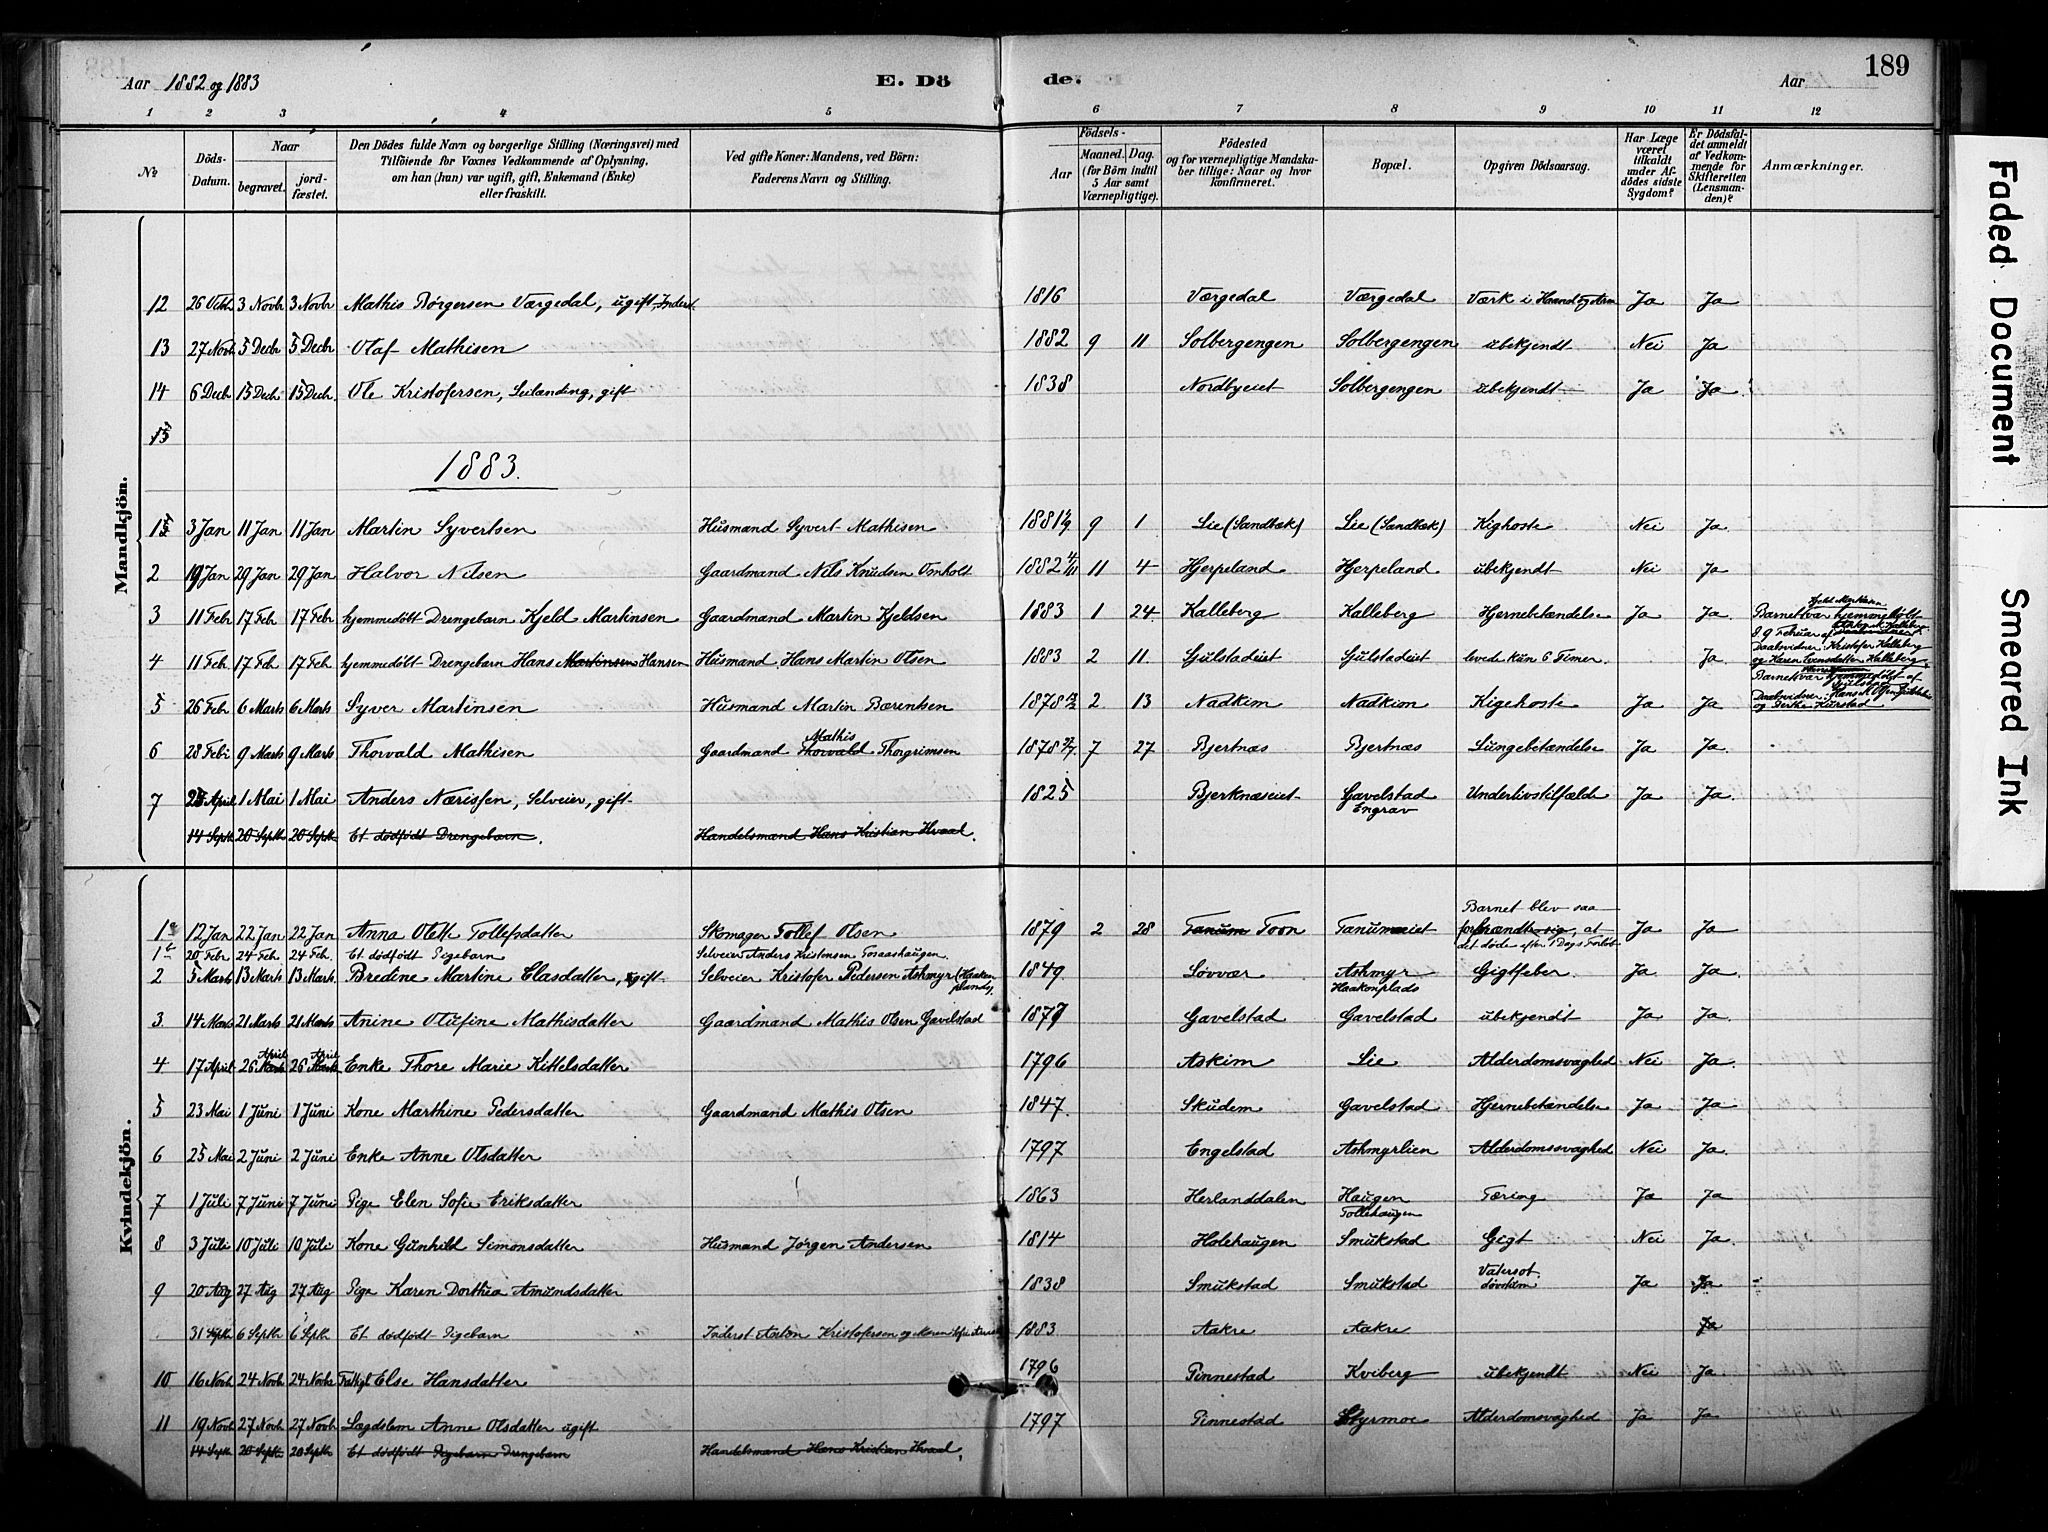 Aar 1882 og 1883 E. Dö de. Aar 189
1 2 3 4 5 6 7 8 9 10 11 12
№ Döds-Datum. Naar begravet. jord-fæstet. Den Dödes fulde Navn og borgerlige Stilling (Næringsvei) med Tilföiende for Voxnes Vedkommende af Oplysning, om han (hun) var ugift, gift, Enkemand (Enke) eller fraskilt. Ved gifte Koner: Mandens, ved Börn: Faderens Navn og Stilling. Födsels- Aar Maaned. Dag. (for Börn indtil 5 Aar samt Værnepligtige). Födested og for værnepligtige Mandskaber tillige: Naar og hvor konfirmeret. Bopæl. Opgiven Dödsaarsag. Har Læge været tilkaldt under Afdödes sidste Sygdom? Er Dödsfaldet anmeldt af Vedkommende for Skifteretten (Lensmanden)? Anmærkninger.
Mandkjön.
12 26 Oktb 3 Novbr 3 Novbr Mathis Børgersen Værgedal, ugift, Inderst. 1816 Værgedal Værgedal Værk i Haand og Arm Ja Ja
13 27 Novb 5 Decbr 5 Decbr Olaf Mathisen 1882 9 11 Solbergengen Solbergengen ubekjendt Nei Ja
14 6 Decb 15 Decb 15 Decb Ole Kristofersen, Leilænding, gift 1838 Nordbyeiet Solbergengen ubekjendt Ja Ja
15
1883.
1 3 Jan 11 Jan 11 Jan Martin Syvertsen Husmand Syvert Mathisen 1881 1/9 9 1 Lie (Sandbæk) Lie (Sandbæk) Kighoste Nei Ja
2 19 Jan 29 Jan 29 Jan Halvor Nilsen Gaardmand Nils Knudsen Omholt 1882 4/11 11 4 Hjerpeland Hjerpeland ubekjendt Nei Ja
3 11 Febr 17 Febr 17 Febr hjemmedøbt Drengebarn Kjeld Martinsen Gaardmand Martin Kjeldsen 1883 1 24 Kalleberg Kalleberg Hjernebetændelse Ja Ja. Barnet var hjemmedøbt
8.9 Februar af
Daabvidner: Kristofer Kalleberg
4 11 Feb. 17 Feb 17 Febr hjemmedøbt Drengebarn Hans Martinsen Hansen Husmand Hans Martin Olsen 1883 2 11. Gjulstadeiet Gjulstadeiet levede kun 6 Timer. Ja. og Karen Svensdatter Kalleberg
Barnet var hjemmedøbt af
5 26 Febr 6 Marts 6 Marts Syver Martinsen Husmand Martin Bærentsen 1878 13/2 2 13 Nadkim Nadkim Kigehoste Ja Ja. Daabvidner:
6 28 Febr 9 Marts 9 Marts Thorvald Mathisen Gaardmand Thorvald Mathis Thorgrimsen 1878 27/7 7 27 Bjertnæs Bjertnæs Lungebetændelse Ja Ja.
7 25 April 1 Mai 1 Mai Anders Nærissen, Selveier, gift 1825 Bjerknæseiet Gavelstad Engrav Underlivstilfælde Ja Ja.
14 Septb 20 Septb 20 Septb Et dødfødt Drengebarn. Handelsmand Hans Kristian Hvaal.
Kvindekjön.
1a 12 Jan 22 Jan 22 Jan Anna Oleth Tollefsdatter Skomager Tollef Olsen 1879 2 28 Tanum Toon Tanumseiet Barnet blev saa forbrændt sig, at det døde efter 1 Dags Forløb Ja Ja
1b 20 Febr 24 Feb. 24 Feb. Et dødfødt Pigebarn Selveier Anders Kristensen Tosaashaugen.
2 5 Marts 13 Marts 13 Marts Bredine Martine Elasdatter, gift Selveier Kristofer Pedersen Askmyr (Haakonplads). 1849 Lovvær Askmyr Haakonplads Gigtfeber Ja Ja.
3. 14 Marts 21 Marts 21 Marts Anine Olufine Mathisdatter Gaardmand Mathis Olsen Gavelstad 1877 Gavelstad Gavelstad ubekjendt Ja Ja.
4. 17 April 26 Marts April 26 Marts April Enke Thore Marie Kittelsdatter 1796 Askim Lie Alderdomsvaghed Nei Ja.
5 23 Mai 1 Juni 1 Juni Kone Marthine Pedersdatter Gaardmand Mathis Olsen 1847. Skudem Gavelstad Hjernebetændelse Ja Ja
6 25 Mai 2 Juni 2 Juni Enke Anne Olsdatter 1797 Engelstad Askmyrlien Alderdomssvaghed Nei Ja
7 1 Juli 7 Juni 7 Juni Pige Elen Sofie Eriksdatter 1863 Herlanddalen Haugen Tollehaugen Tæring Ja Ja
8 3 Juli 10 Juli 10 Juli Kone Gunhild Simonsdatter Husmand Jørgen Andersen 1814 Holehaugen Smukstad Gigt Nei Ja.
9 20 Aug 27 Aug 27 Aug Pige Karen Dorthea Amundsdatter 1838 Smukstad Smukstad Vatersot Ja Ja
31 Septb 6 Septb 6 Septb Et dødfødt Pigebarn Inderst Anton Kristofersen og 1883 Aakre Aakre Ja
10 16 Novb 24 Novb 24 Novb Else Hansdatter 1796 Pinnestad Kviberg ubekjendt Nei Ja.
11 19 Novb 27 Novb 27 Novb Lægdslem Anne Olsdatter ugift 1797 Pinnestad Styrmoe Alderdomsvaghed Ja Ja
14 Septb 20 Septb 20 Septb Et dødfødt Pigebarn Drengebarn Handelsmand Hans Kristian Hvaal.
Faded Document
Smeared Ink